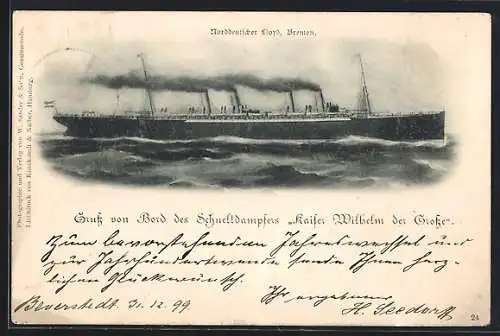 Norddeutscher Lloyd, Bremen.
Photographie und Verlag von W. Sander & Sohn, Geestemünde.
Lichtdruck von Knackstedt & Näther, Hamburg.
Gruß von Bord des Schnelldampfers „Kaiser Wilhelm der Große“.
Zum bevorstehenden Jahreswechsel und
zur Jahrhundertwende sende Ihnen herz-
lichen Glückwunsch.
Ihr ergebener
Beverstedt 31.12.99
H. Seedorf
24